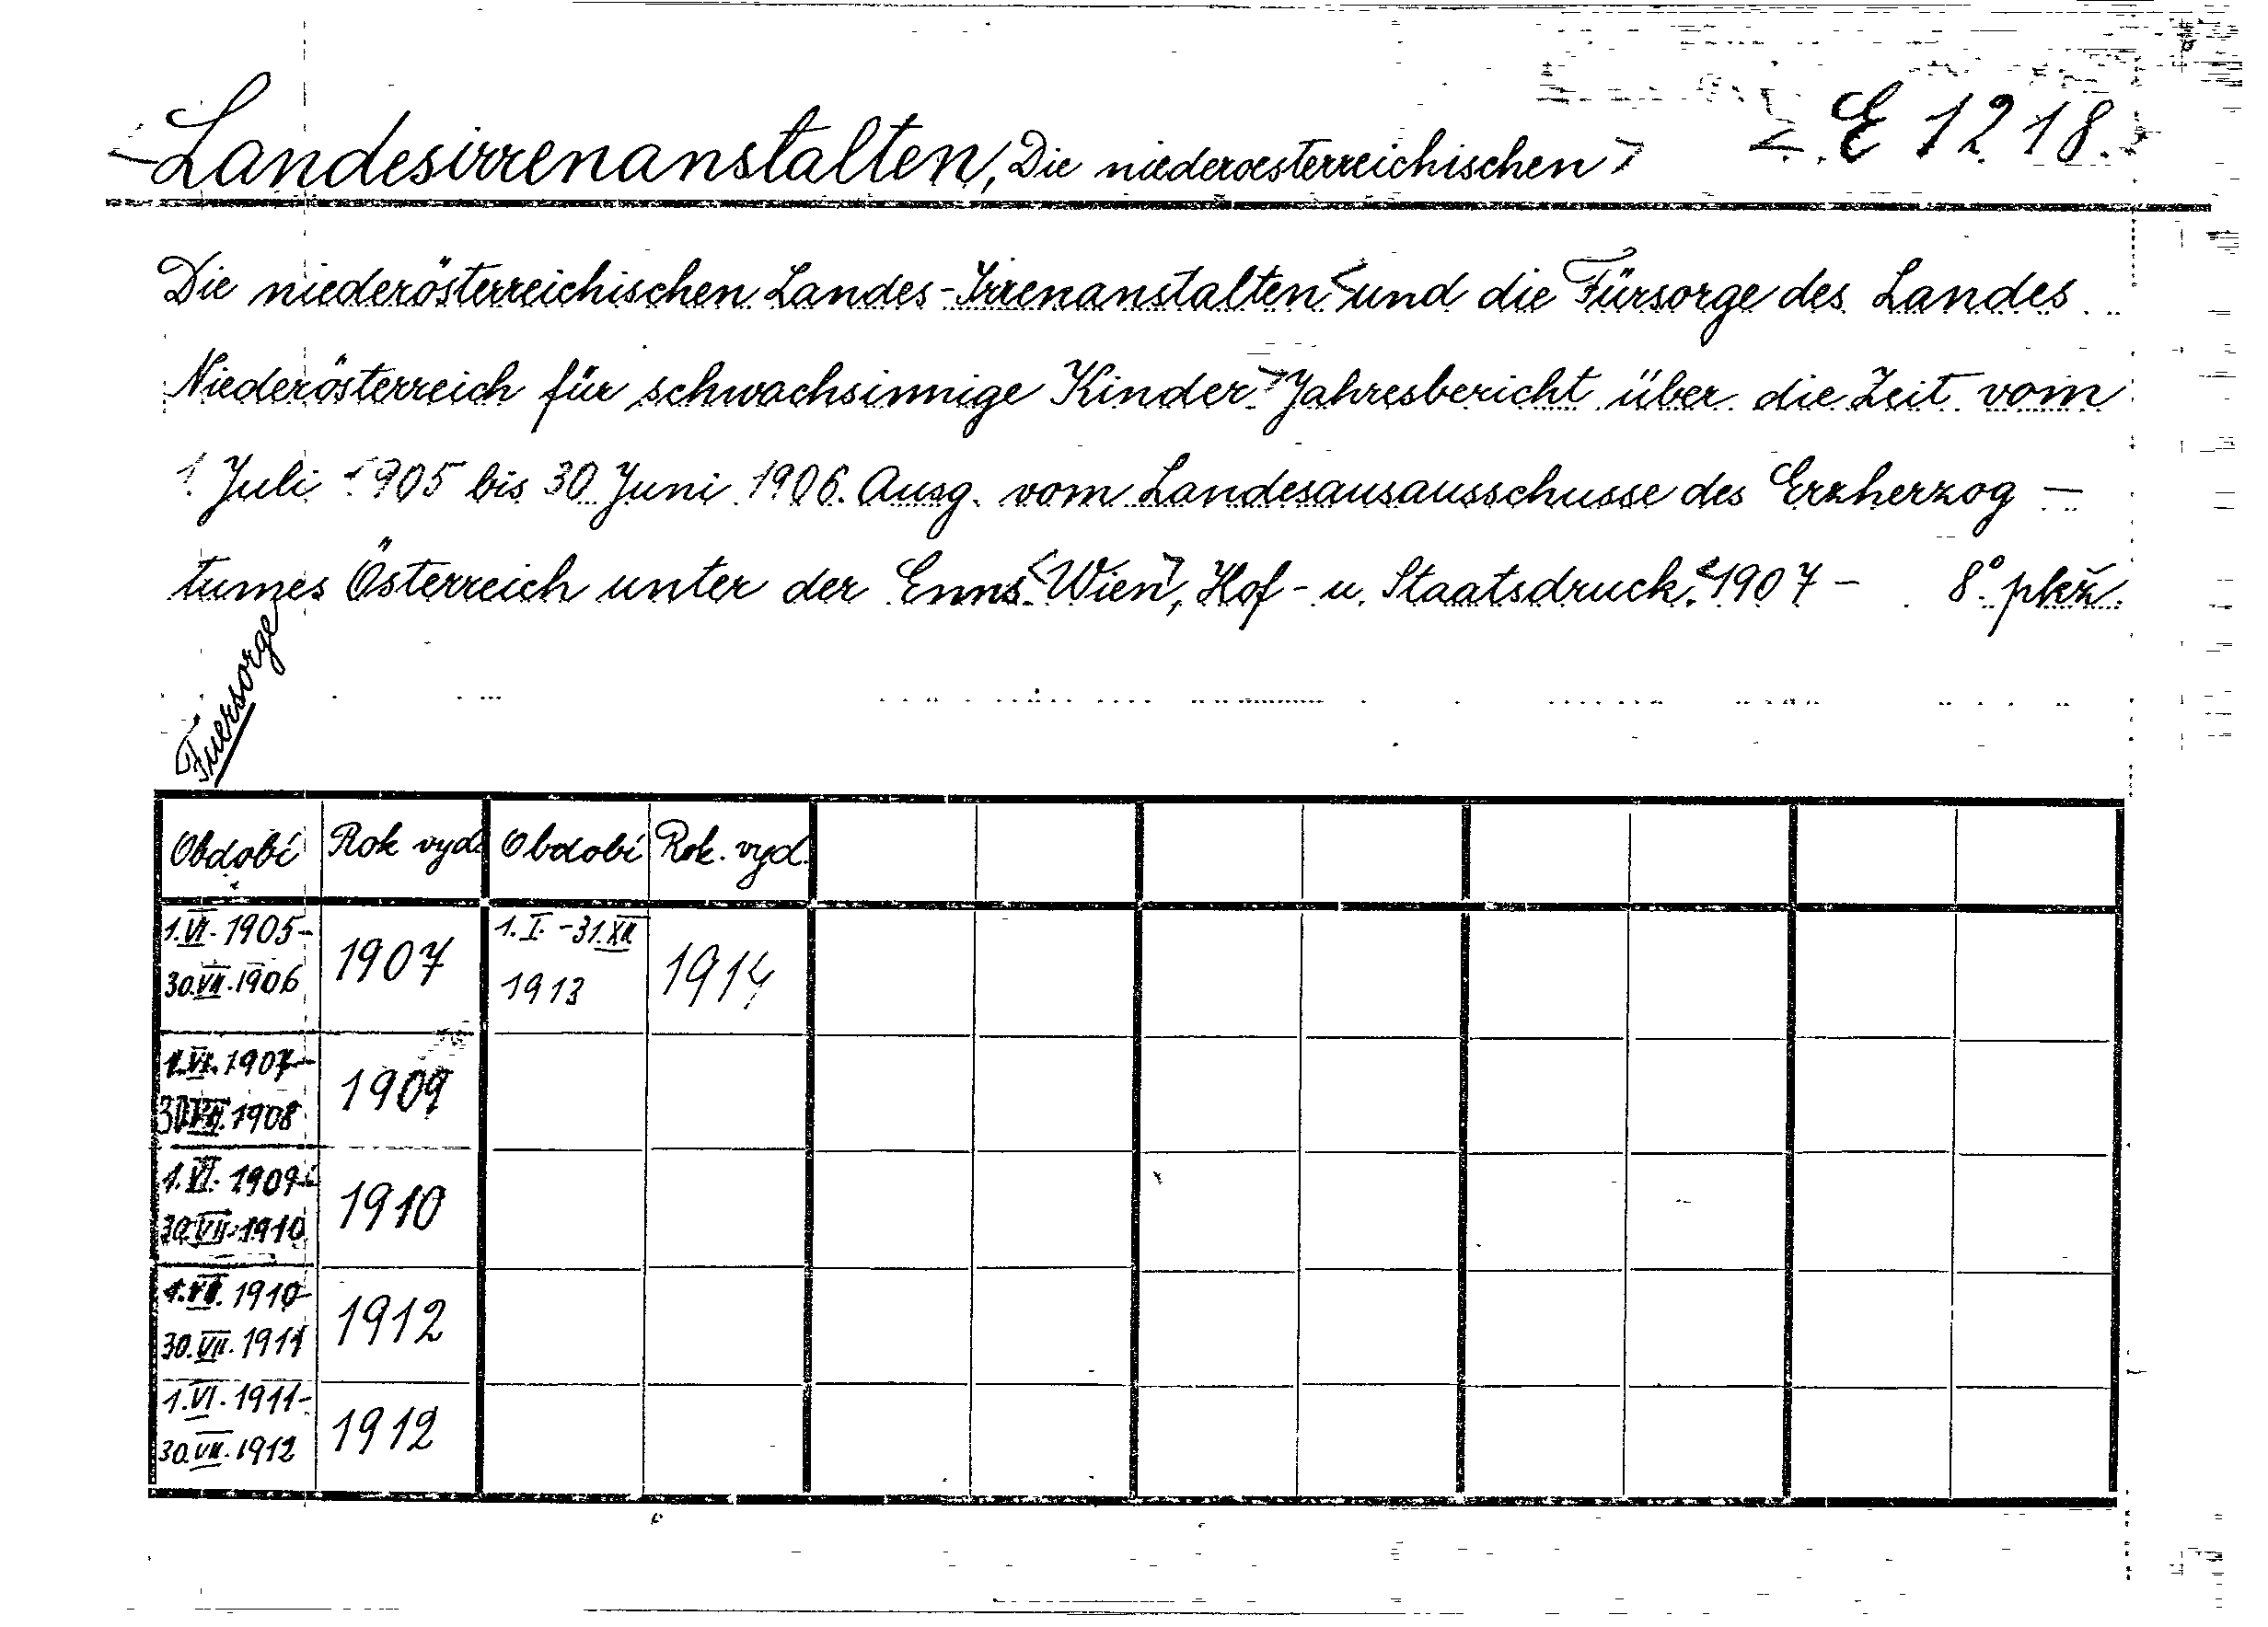 <Landesirrenanstalten, Die niederoesterreichischen> E 1218.
Die niederösterreichischen Landes-Irrenanstalten <und die Fürsorge des Landes
Niederösterreich für schwachsinnige Kinder.> Jahresbericht über die Zeit vom
1. Juli 1905 bis 30. Juni 1906. Ausg. vom Landesausausschusse des Erzherzog-
tumes Österreich unter der Enns. <Wien>, Hof- u. Staatsdruck. 1907- 8° pkž.
Fuersorge
Období Rok vyd. Období Rok. vyd.
1.VI. 1905- 1907 1.I. -31.XII 1914
30.VII.1906 1913
1.VI.1907- 1909
30.VII.1908
1.VI. 1909- 1910
30.VII.1910
1.VI. 1910- 1912
30.VII.1911
1.VI.1911- 1912
30.VII.1912